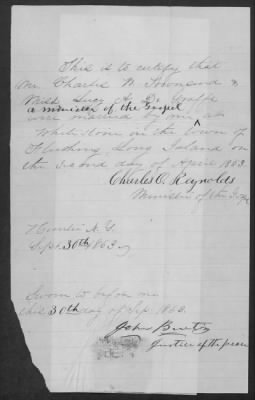 This is to certify that
Mr. Charles W. Townsend &
Miss Lucy A. De Graffe
a minister of the Gospel
were married by me, ^ at
White Stone in the town of
Flushing Long Island on
the second day of April 1863.
Charles O. Reynolds
Minister of the
N.Y.
Sept 30th 1863
Sworn to before me
this 30th day of Sep. 1863.
John
Justice of the peace